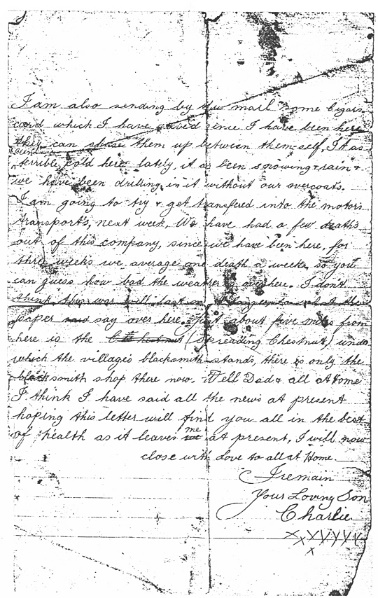 I am also sending by this mail some Cigar
card which I have saved since I have been here
they can share them up between themself. It has
been
terrible cold here lately, it as been snowing & rain &
we have been drilling in it without our overcoats.
I am going to try & get transfered into the motor
transports, next week. We have had a few death's
out of this company, since we have been here, for
three weeks we average one death a week, so you
can guess how bad the weather is here. I don't
think this war will last
papers say over here. about five miles from
here is the (Spreading Chestnut) under
which the village blacksmith stands, there is only the
blacksmith shop there now. Well Dad & all at Home
I think I have said all the news at present
hoping this letter will find you all in the best
me
of health as it leaves at present, I will now
close with love to all at Home.
I remain
Your Loving Son
Charlie
xxxxxxx
x